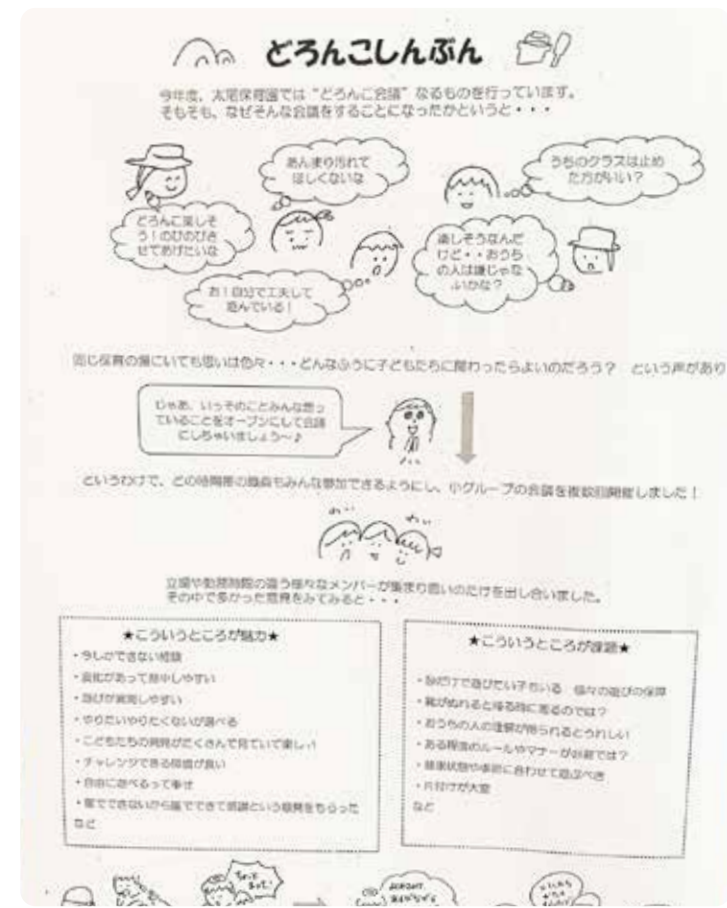 どろんこしんぶん
今年度、太尾保育園では“どろんこ会議”なるものを行っています。
そもそも、なぜそんな会議をすることになったかというと・・・
あんまり汚れて
ほしくないな
うちのクラスは止め
た方がいい?
どろんこ楽しそ
う!のびのびさ
せてあげたいな
楽しそうなんだ
けど・・おうち
の人は嫌じゃな
いかな?
お!自分で工夫して
遊んでいる!
同じ保育の場にいても思いは色々・・・どんなふうに子どもたちに関わったらよいのだろう? という声があり
じゃあ、いっそのことみんな思っ
ていることをオープンにして会議
にしちゃいましょう~♪
というわけで、どの時間帯の職員もみんな参加できるようにし、小グループの会議を複数回開催しました!
わい わい
立場や勤務時間の違う様々なメンバーが集まり思いのたけを出し合いました。
その中で多かった意見をみてみると・・・
★こういうところが魅力★
・今しかできない経験
・変化があって集中しやすい
・遊びが発展しやすい
・やりたいやりたくないが選べる
・こどもたちの発見がたくさんで見ていて楽しい!
・チャレンジできる環境が良い
・自由に遊べるって幸せ
・家でできないから園でできて感謝という意見をもらった
など
★こういうところが課題★
・砂だけで遊びたい子もいる 様々な遊びの保障
・靴がぬれると帰る時に困るのでは?
・おうちの人の理解が得られるとうれしい
・ある程度のルールやマナーが必要では?
・健康状態や季節に合わせて遊ぶべき
・片付けが大変
など
ちょっと
まって!